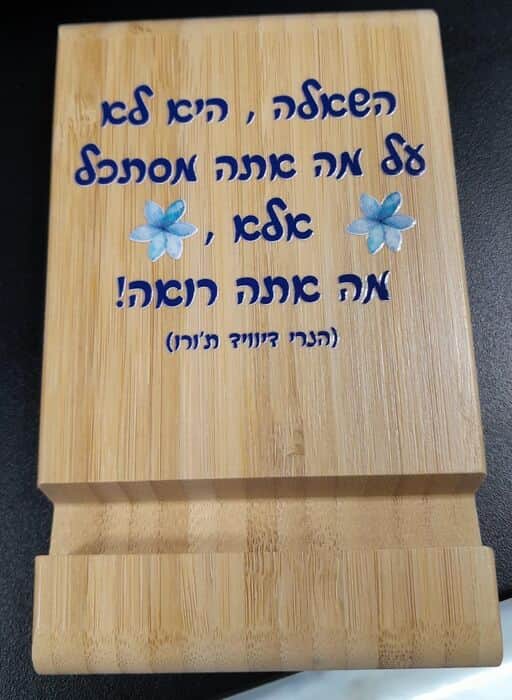 השאלה , היא לא
על מה אתה מסתכל
אלא ,
מה אתה רואה!
(הנרי דיוויד ת'ורו)